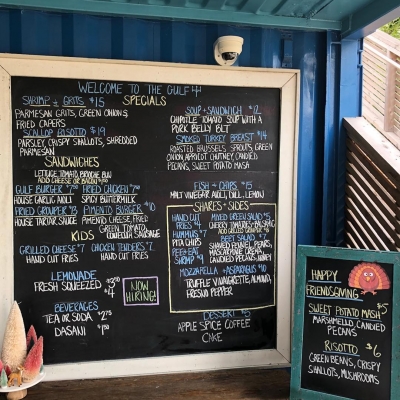 WELCOME TO THE GULF
SPECIALS
SHRIMP & GRITS $15
PARMESAN GRITS, GREEN ONIONS
FRIED CAPERS
SCALLOP RISOTTO $19
PARSLEY, CRISPY SHALLOTS, SHREDDED
PARMESAN
SANDWICHES
LETTUCE, TOMATO, BRIOCHE BUN
ADD CHEESE OR BACON
GULF BURGER FRIED CHICKEN
HOUSE GARLIC AIOLI SPICY BUTTERMILK
FRIED GROUPER PIMENTO BURGER
HOUSE TARTAR SAUCE PIMENTO CHEESE, FRIED
GREEN TOMATO,
CONECUH SAUSAGE
KIDS
GRILLED CHEESE $7 CHICKEN TENDERS $7
HAND CUT FRIES HAND CUT FRIES
LEMONADE
FRESH SQUEEZED
NOW
HIRING!
BEVERAGES
TEA OR SODA
DASANI
SOUP & SANDWICH $12
CHIPOTLE TOMATO SOUP WITH A
PORK BELLY BLT
SMOKED TURKEY BREAST $14
ROASTED BRUSSELS SPROUTS, GREEN
ONION, APRICOT CHUTNEY, CANDIED
PECANS, SWEET POTATO MASH
FISH & CHIPS $15
MALT VINEGAR AIOLI, DILL, LEMON
SHARES & SIDES
HAND CUT
FRIES $4
MIXED GREEN SALAD
CHERRY TOMATOES,
HUMMUS $7
PITA CHIPS
BEET SALAD
SHAVED FENNEL, PEARS,
MASCARPONE CREAM,
CANDIED PECANS, HONEY
PEEL & EAT
SHRIMP
MOZZARELLA & ASPARAGUS $10
TRUFFLE VINAIGRETTE, ALMOND,
FRESNO PEPPER
DESSERT $5
APPLE SPICE COFFEE
CAKE
HAPPY
FRIENDSGIVING
SWEET POTATO MASH $5
MARSHMELLO, CANDIED
PECANS
RISOTTO $6
GREEN BEANS, CRISPY
SHALLOTS, MUSHROOMS